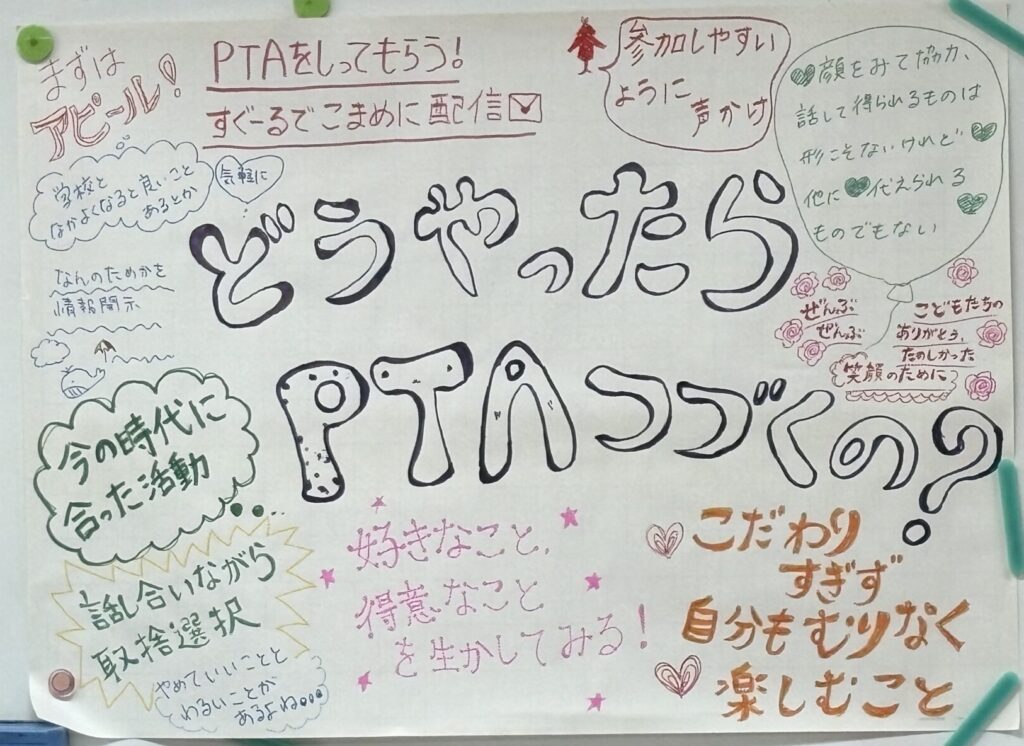 まずは
アピール!
PTAをしってもらう!
すぐーるでこまめに配信
参加しやすい
ように
声かけ
顔をみて協力、
話して得られるものは
形こそないけれど
他に代えられる
ものでもない
学校と
なかよくなると良いこと
あるとか
気軽に
どうやったら
PTAつづくの?
なんのためかを
情報開示
ぜんぶ
ぜんぶ
こどもたちの
ありがとう、
たのしかった
笑顔のために
今の時代に
合った活動
話し合いながら
取捨選択
やめていいことと
わるいことが
あるよね...
好きなこと、
得意なこと
を生かしてみる!
こだわり
すぎず
自分もむりなく
楽しむこと